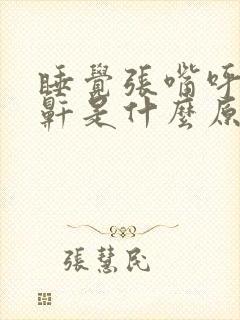 睡覺張嘴呼
鼾是什麼原
張慧民